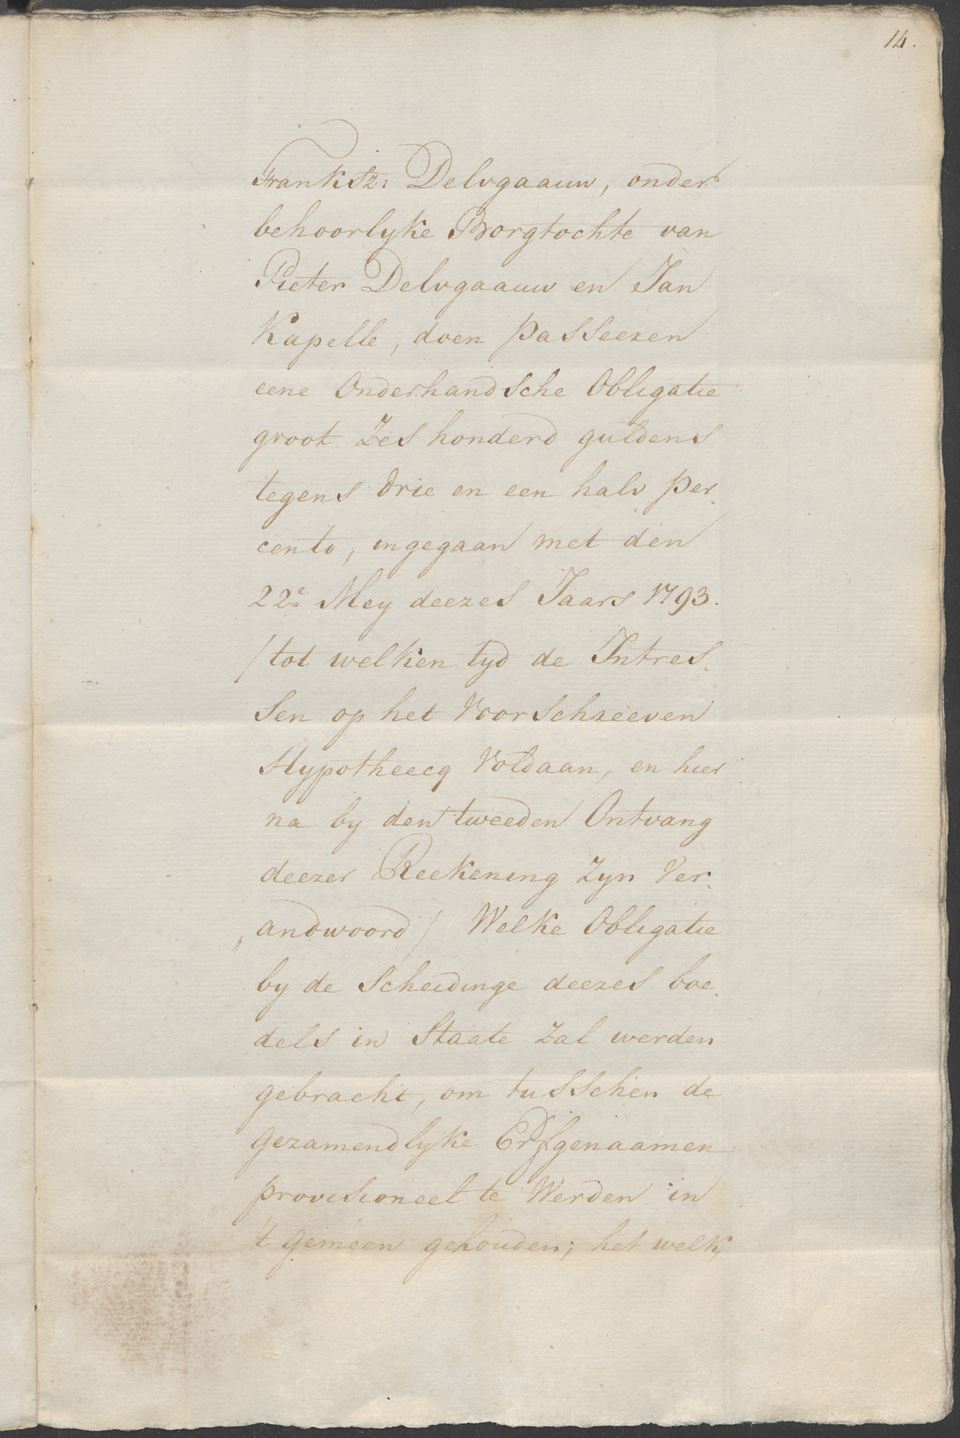 14.
Franksz: Delvgaauw, onder
behoorlyke Borgtochte van
Pieter Delvgaauw en Jan
Kapelle, doen passeeren
eene Onderhandsche Obligatie
groot Zes honderd guldens
tegens drie en een halv per„
cento, ingegaan met den
22e Mey deezes Jaars 1793.
/tot welken tyd de Intres„
sen op het Voorschreeven
Hypotheecq Voldaan, en hier
na by den tweeden Ontvang
deezer Reekening zyn Ver„
„andwoord/ Welke Obligatie
by de Scheidinge deezes boe„
dels in Staate zal werden
gebracht, om tusschen de
gezamendlyke Erfgenaamen
provisioneel te Werden in
't gemeen gehouden; het welk